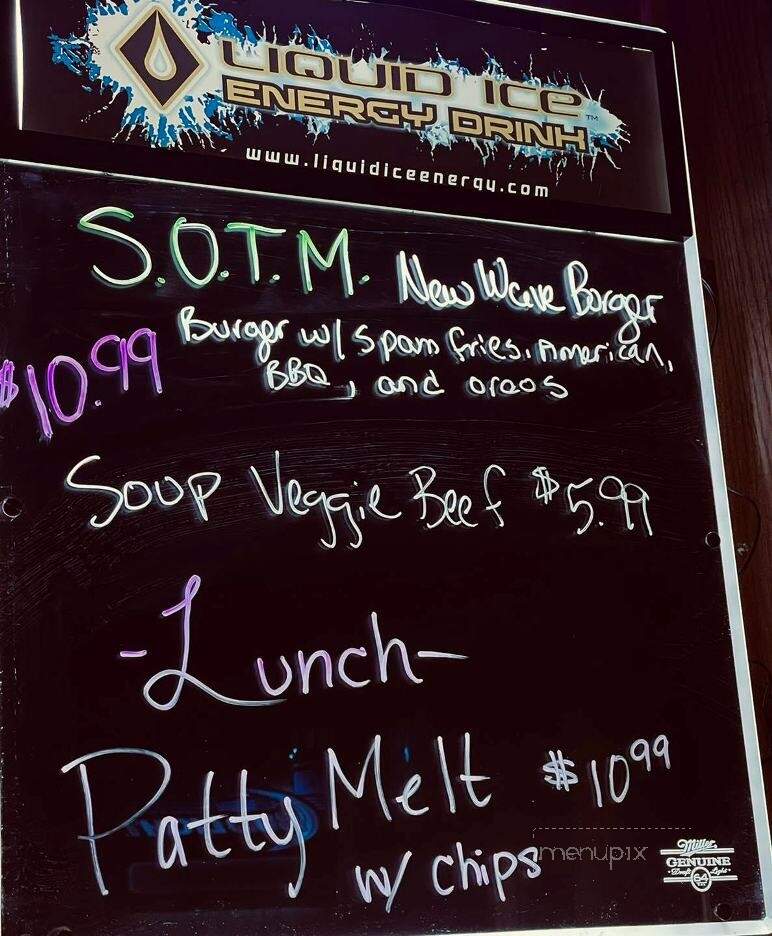 LIQUID ICE
ENERGY DRINK™
www.liquidiceenergy.com
S.O.T.M. New Wave Burger
$10.99 Burger w/ Spam fries, American,
BBQ, and oreos
Soup Veggie Beef $5.99
-Lunch-
Patty Melt $10.99
w/ chips
menupix
Miller
GENUINE
Draft Light
64